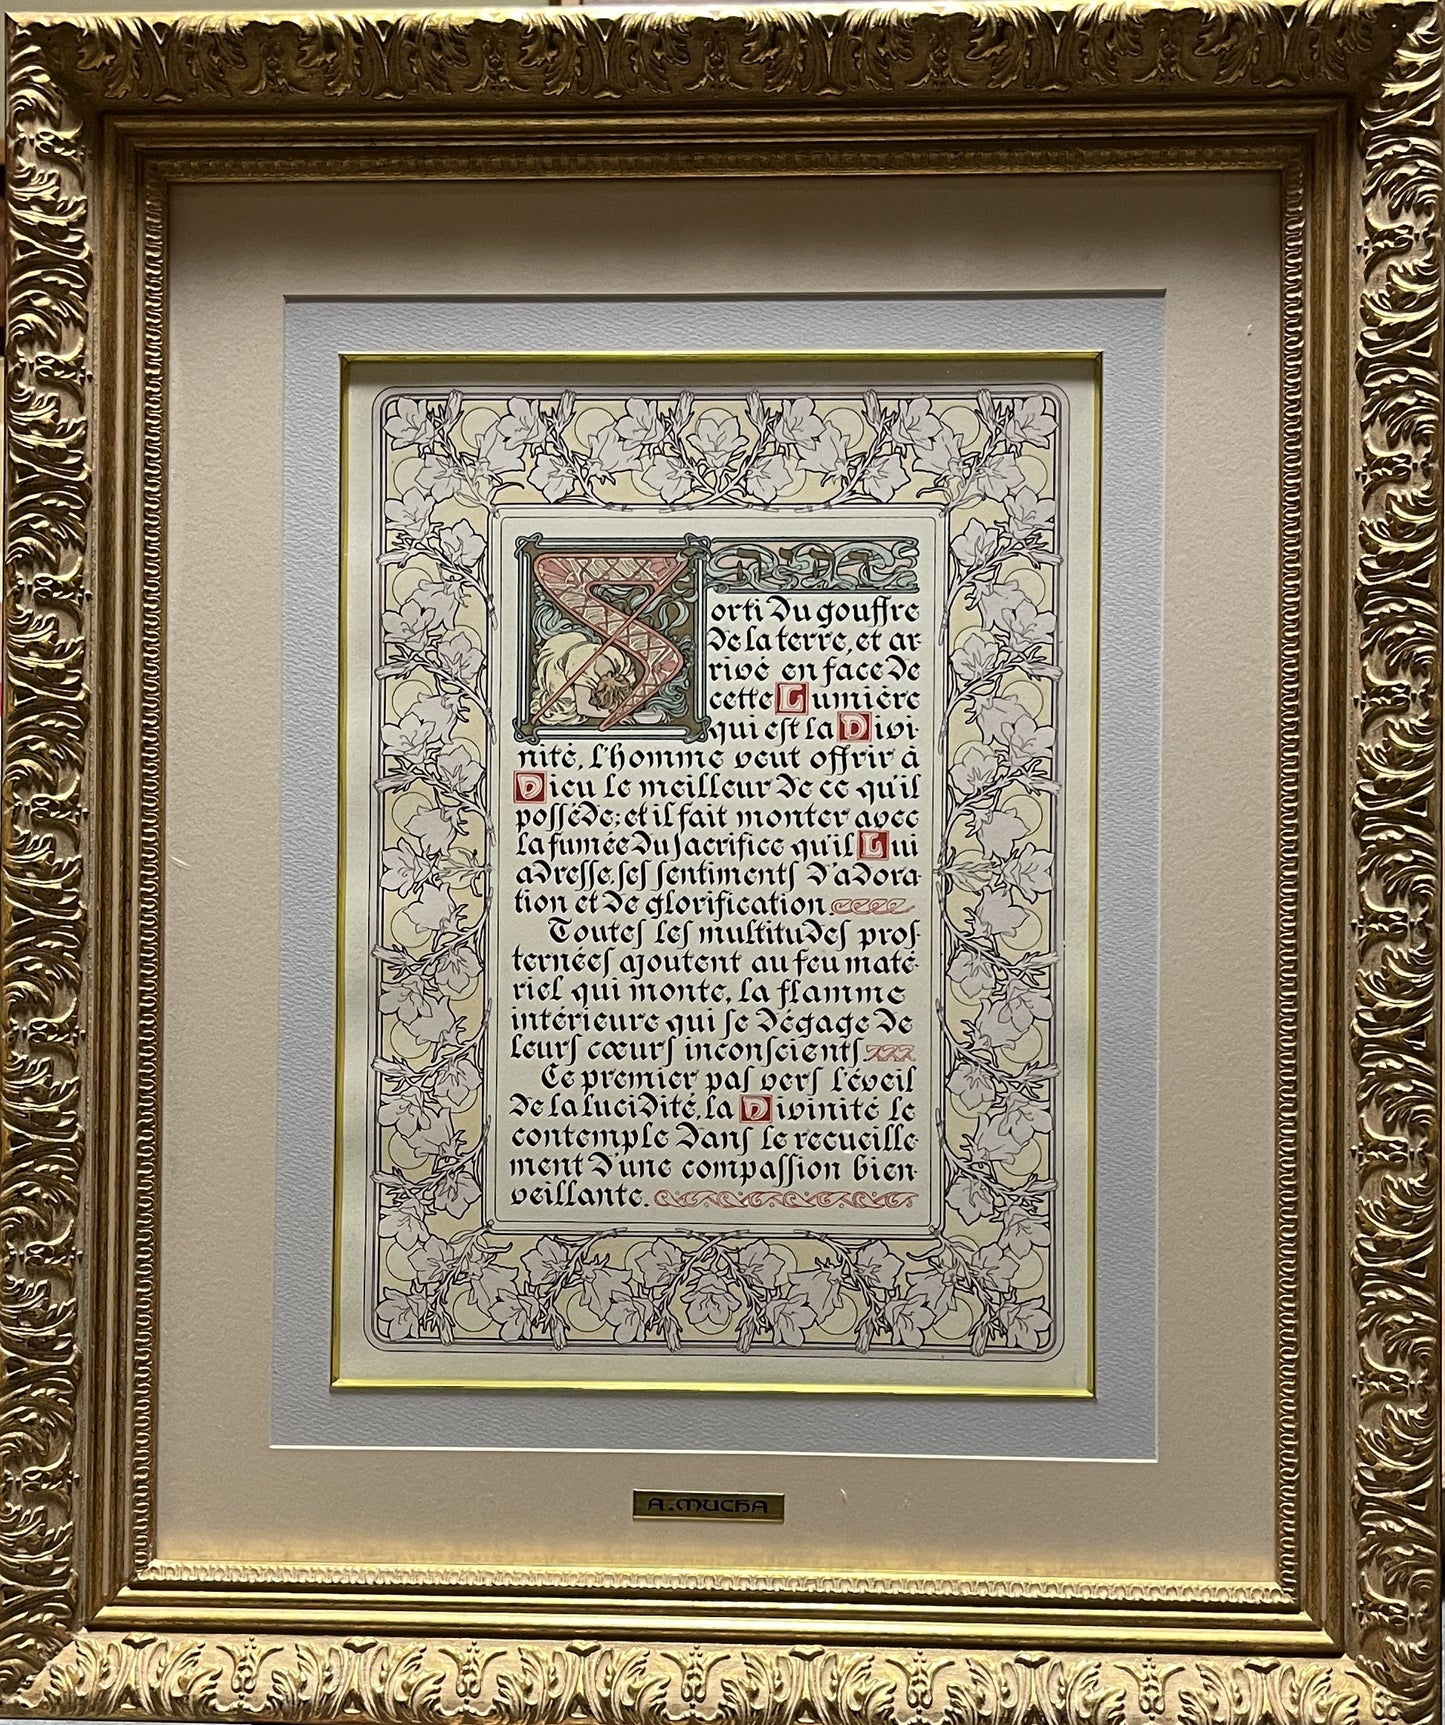 Sorti du gouffre
de la terre, et ar
rivé en face de
cette Lumière
qui est la Divi-
nité, l'homme veut offrir à
Dieu le meilleur de ce qu'il
possède; et il fait monter avec
la fumée du sacrifice qu'il Lui
adresse, ses sentiments d'adora-
tion et de glorification.
Toutes les multitudes pros-
ternées ajoutent au feu maté-
riel qui monte, la flamme
intérieure qui se dégage de
leurs cœurs inconscients.
Ce premier pas vers l'éveil
de la lucidité, la Divinité le
contemple dans le recueille-
ment d'une compassion bien-
veillante.
A. MUCHA